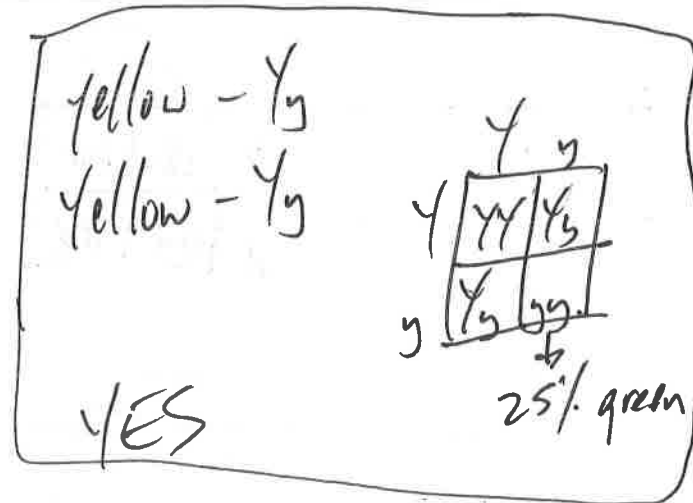 yellow - Yy
Yellow - Yy
Y y
Y YY Yy
y Yy yy
25% green
YES